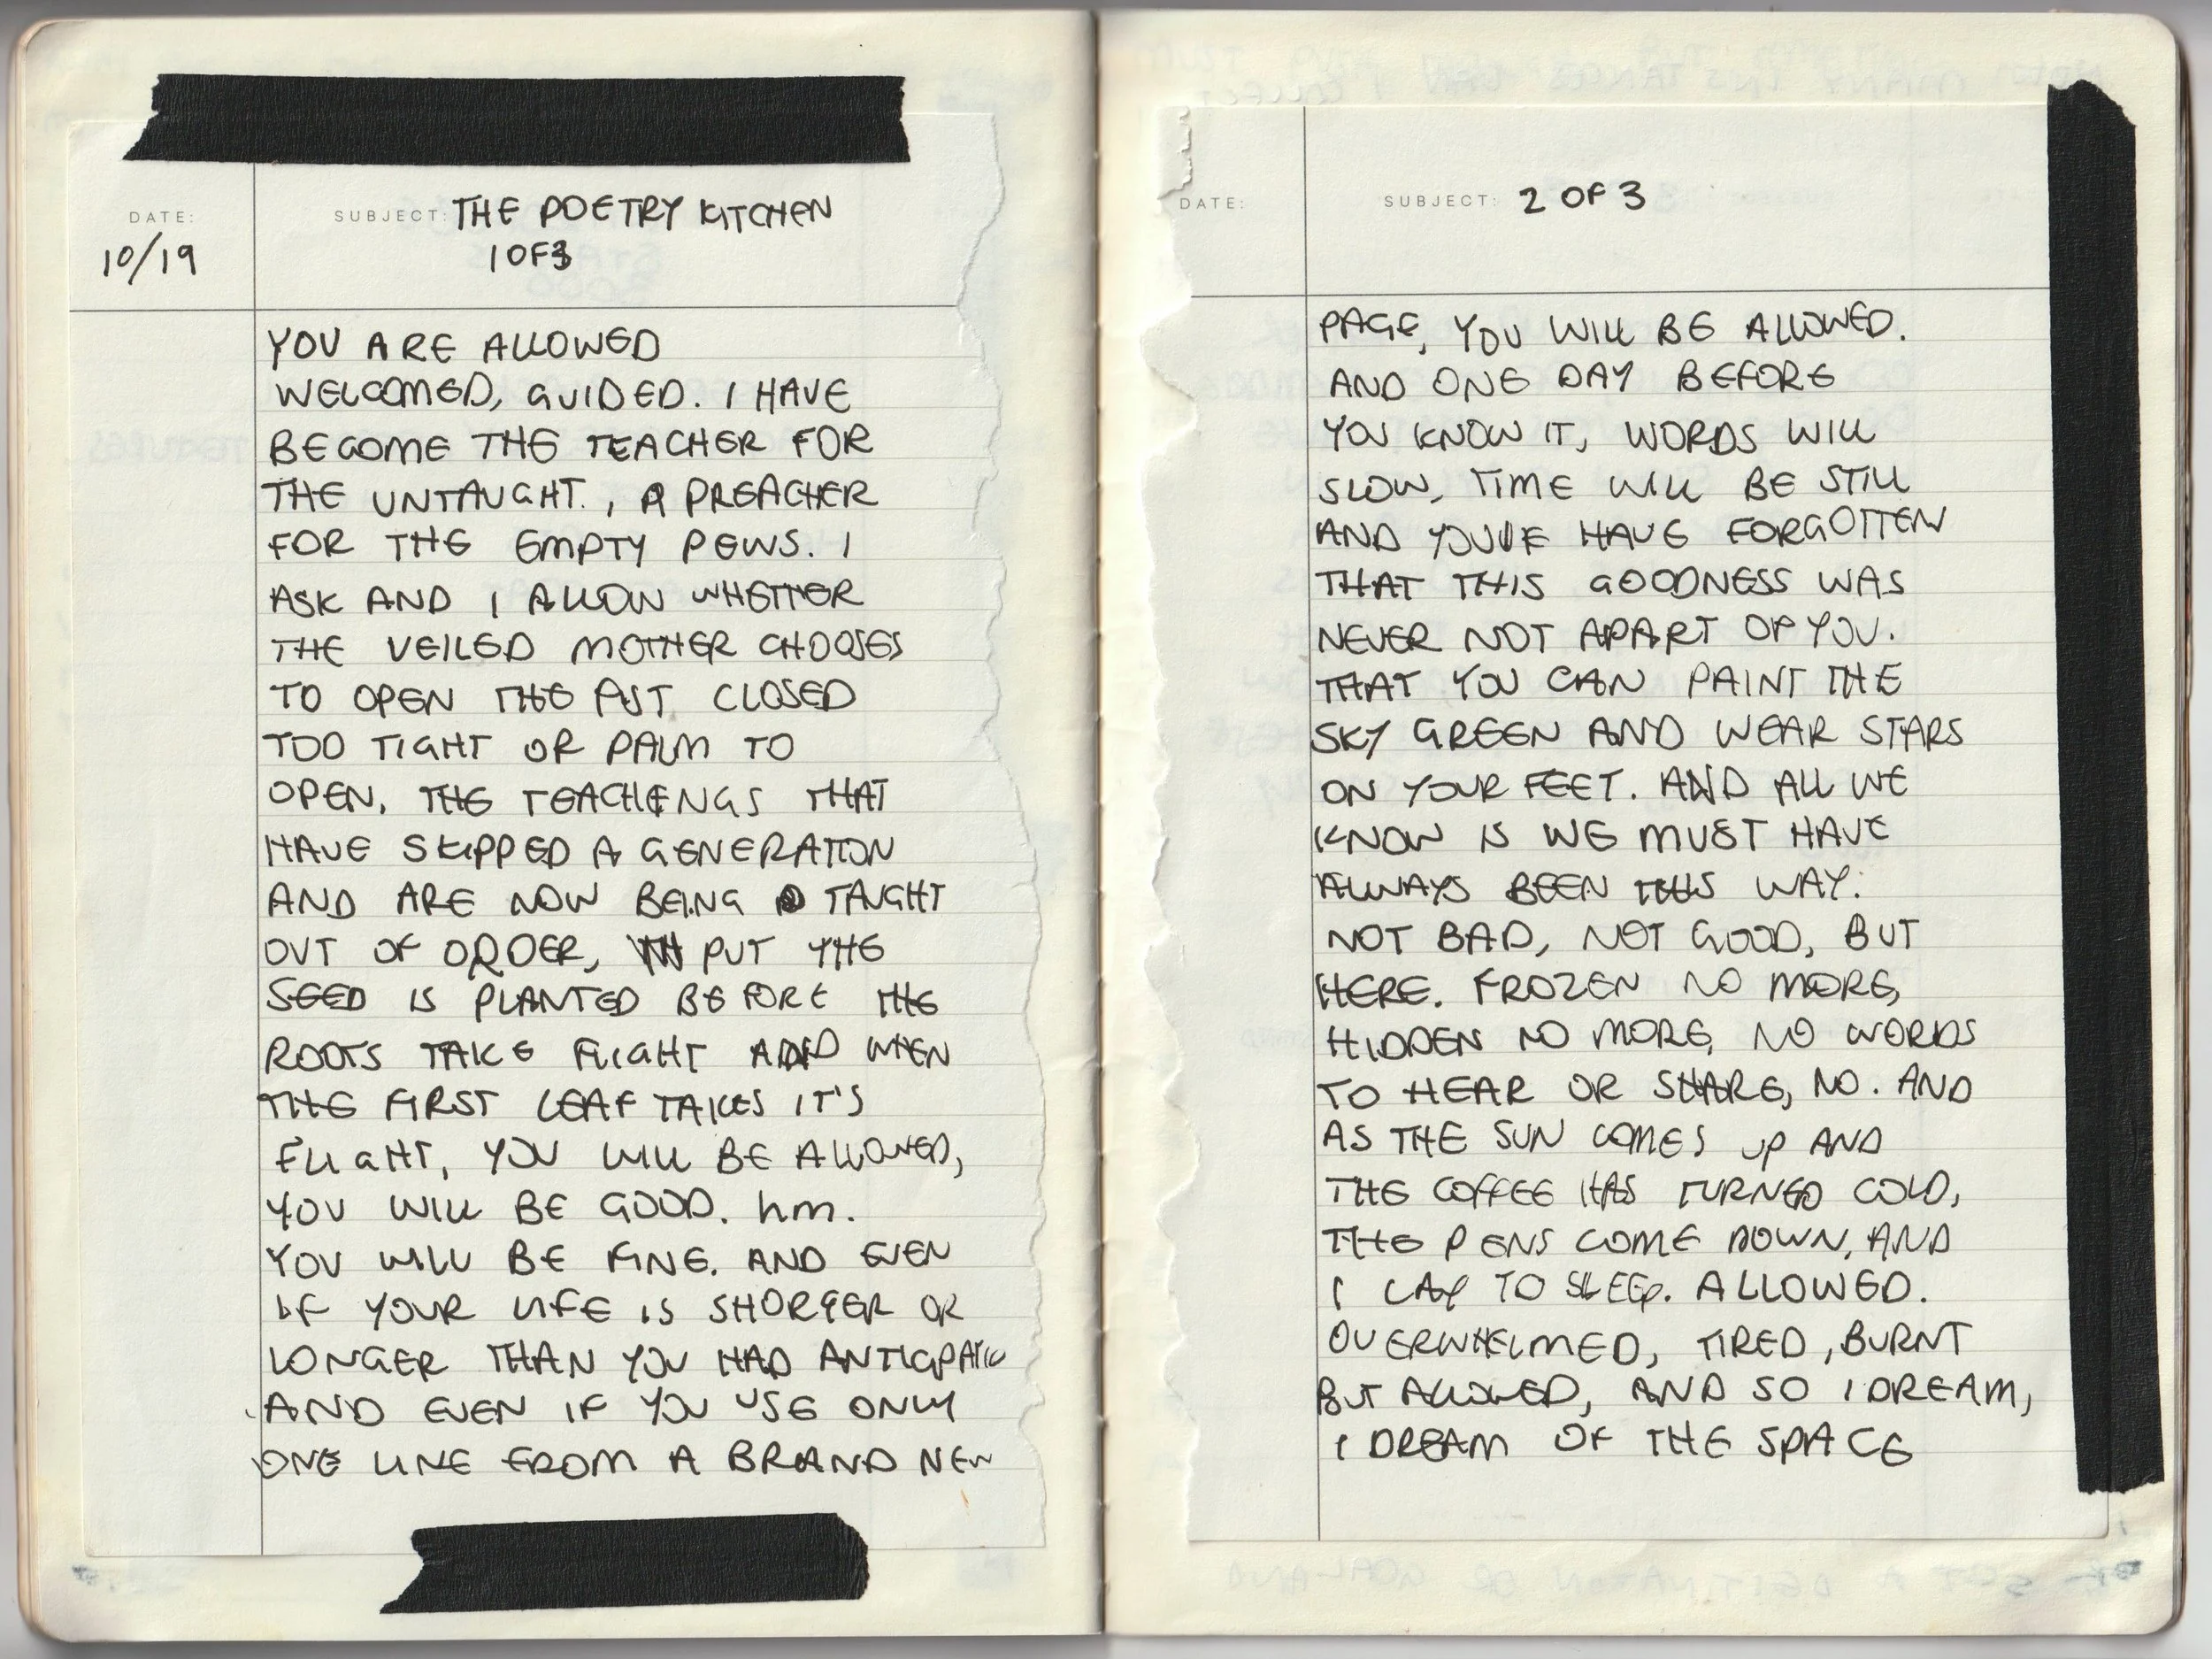 DATE:
10/19
SUBJECT: THE POETRY KITCHEN
1 OF 3
YOU ARE ALLOWED
WELCOMED, GUIDED. I HAVE
BECOME THE TEACHER FOR
THE UNTAUGHT., A PREACHER
FOR THE EMPTY PEWS. I
ASK AND I ALLOW WHETHER
THE VEILED MOTHER CHOOSES
TO OPEN THE FIST CLOSED
TOO TIGHT OR PALM TO
OPEN. THE TEACHINGS THAT
HAVE SKIPPED A GENERATION
AND ARE NOW BEING TAUGHT
OUT OF ORDER, PUT THE
SEED IS PLANTED BEFORE THE
ROOTS TAKE FLIGHT AND WHEN
THE FIRST LEAF TAKES IT'S
FLIGHT, YOU WILL BE ALLOWED,
YOU WILL BE GOOD. hm.
YOU WILL BE FINE. AND EVEN
IF YOUR LIFE IS SHORTER OR
LONGER THAN YOU HAD
AND EVEN IF YOU USE ONLY
ONE LINE FROM A BRAND NEW
DATE:
SUBJECT: 2 OF 3
PAGE, YOU WILL BE ALLOWED.
AND ONE DAY BEFORE
YOU KNOW IT, WORDS WILL
SLOW, TIME WILL BE STILL
AND YOU'VE HAVE FORGOTTEN
THAT THIS GOODNESS WAS
NEVER NOT APART OF YOU.
THAT YOU CAN PAINT THE
SKY GREEN AND WEAR STARS
ON YOUR FEET. AND ALL WE
KNOW IS WE MUST HAVE
ALWAYS BEEN THIS WAY.
NOT BAD, NOT GOOD, BUT
HERE. FROZEN NO MORE,
HIDDEN NO MORE, NO WORDS
TO HEAR OR SHARE, NO. AND
AS THE SUN COMES UP AND
THE COFFEE HAS TURNED COLD,
THE PENS COME DOWN, AND
I LAY TO SLEEP. ALLOWED.
OVERWHELMED, TIRED, BURNT
BUT ALLOWED, AND SO I DREAM,
I DREAM OF THE SPACE